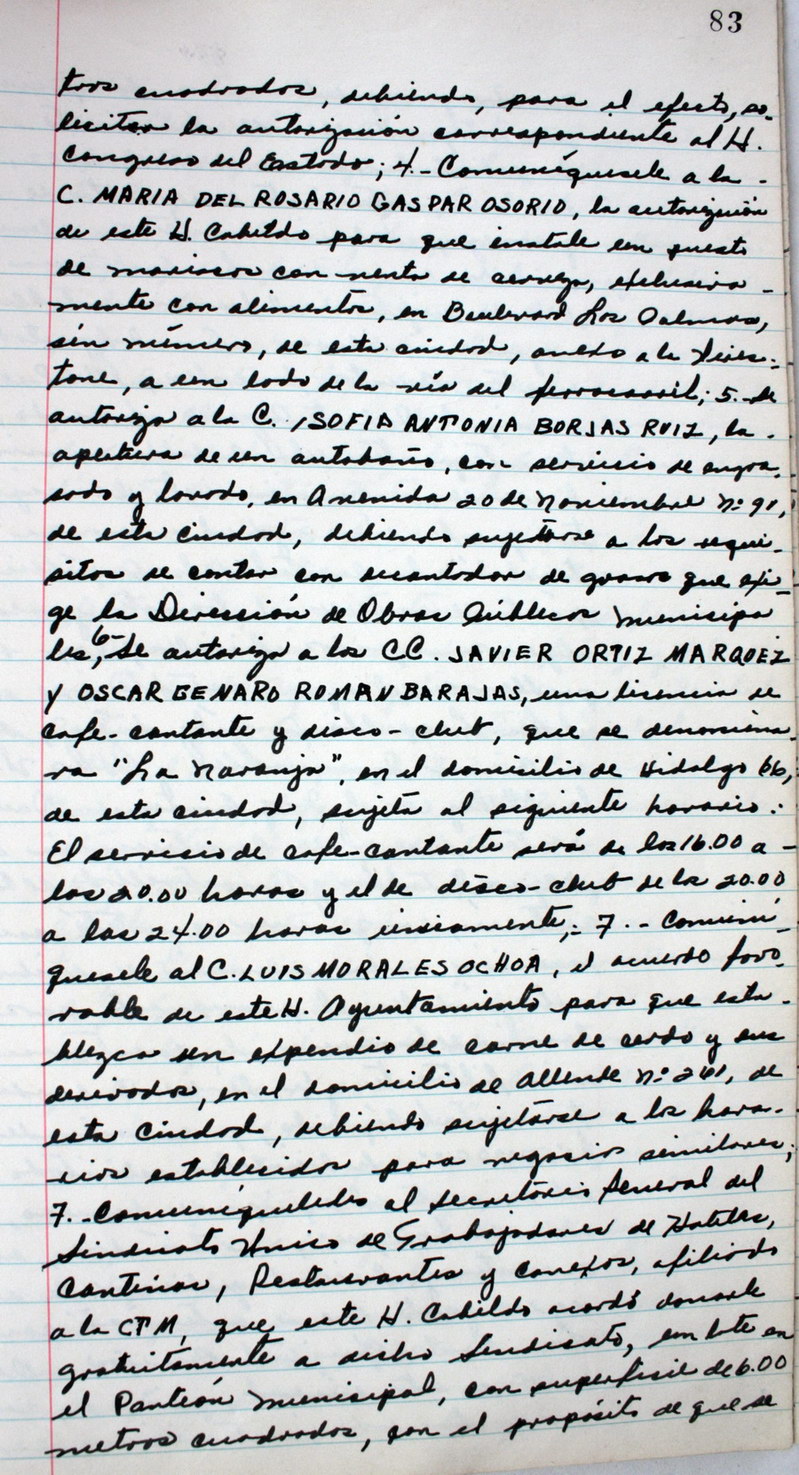 83
tros cuadrados, debiendo, para el efecto, so-
licitar la autorización correspondiente al H.
Congreso del Estado; 4.- Comuníquesele a la -
C. MARIA DEL ROSARIO GASPAR OSORIO, la autorización
de este H. Cabildo para que instale un puesto
de mariscos con venta de cerveza, exclusiva -
mente con alimentos, en Boulevard Los Palmas,
sin número, de esta ciudad, anexo a la Fires-
tone, a un lado de la vía del ferrocarril; 5.- Se
autoriza a la C. SOFIA ANTONIA BORJAS RUIZ, la -
apertura de un autobaño, con servicio de engra-
sado y lavado, en Avenida 20 de Noviembre Nº 91,
de esta ciudad, debiendo sujetarse a los requi-
sitos de contar con decantador de grasas que exi-
ge la Dirección de Obras Públicas Municipa
les; 6- Se autoriza a los CC. JAVIER ORTIZ MARQUEZ
Y OSCAR GENARO ROMAN BARAJAS, una licencia de
cafe-cantante y disco-club, que se denomina-
ra "La Naranja", en el domicilio de Hidalgo 66,
de esta ciudad, sujeta al siguiente horario:
El servicio de cafe-cantante será de las 16.00 a -
las 20.00 horas y el de disco-club de las 20.00
a las 24.00 horas únicamente; 7.- Comuní-
quesele al C. LUIS MORALES OCHOA, el acuerdo favo-
rable de este H. Ayuntamiento para que esta-
blezca un expendio de carne de cerdo y sus
derivados, en el domicilio de Allende Nº 261, de
esta ciudad, debiendo sujetarse a los hora-
rios establecidos para negocios similares;
7.- Comuníqueseles al Secretario General del
Sindicato Unico de Trabajadores de Hoteles,
Cantinas, Restaurantes y Conexos, afiliado
a la CTM, que este H. Cabildo acordó donarle
gratuitamente a dicho Sindicato, un lote en
el Panteón Municipal, con superficie de 6.00
metros cuadrados, con el propósito de que se